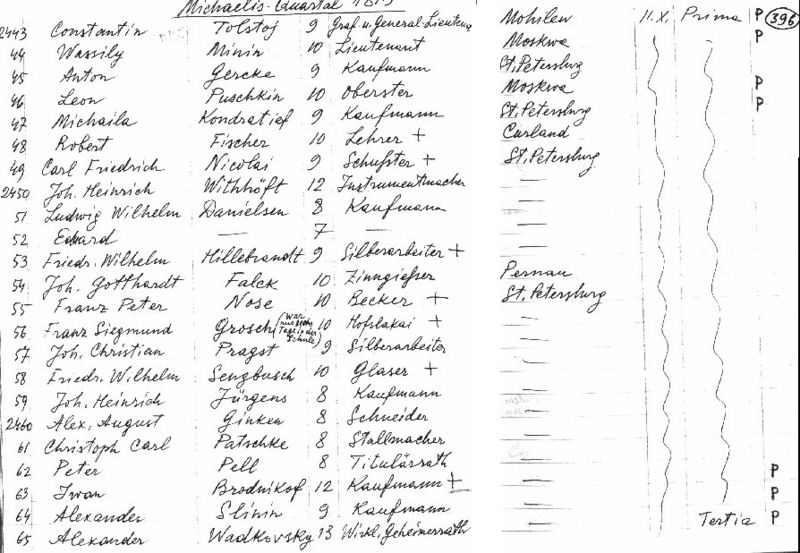 Michaelis-Quartal
2443 Constantin Tolstoj 9 Graf u. General-Lieutena Mohilew 11.X. Prima P 396
44 Wassily Minin 10 Lieutenant Moskwa P
45 Anton Gercke 9 Kaufmann St. Petersburg
46 Leon Puschkin 10 Oberster Moskwa P
47 Michaila Kondratief 9 Kaufmann St. Petersburg P
48 Robert Fischer 10 Lehrer + Curland
49 Carl Friedrich Nicolai 9 Schuster + St. Petersburg
2450 Joh. Heinrich Withhöft 12 Instrumentmacher —
51 Ludwig Wilhelm Danielsen 8 Kaufmann —
52 Eduard — 7 — —
53 Friedr. Wilhelm Hillebrandt 9 Silberarbeiter + —
54 Joh. Gotthardt Falck 10 Zinngiesser Pernau
55 Franz Peter Nose 10 Becker + St. Petersburg
56 Franz Siegmund Grosch (war nur sechs Tage in der Schule) 10 Hofslakai + —
57 Joh. Christian Pragst 9 Silberarbeiter —
58 Friedr. Wilhelm Sengbusch 10 Glaser + —
59 Joh. Heinrich Jürgens 8 Kaufmann —
2460 Alex. August Ginken 8 Schneider —
61 Christoph Carl Patschke 8 Stallmacher —
62 Peter Pell 8 Titulärrath — P
63 Iwan Brodnikof 12 Kaufmann + — P
64 Alexander Slinin 9 Kaufmann — Tertia P
65 Alexander Wadkovsky 13 Wirkl. Geheimerrath —